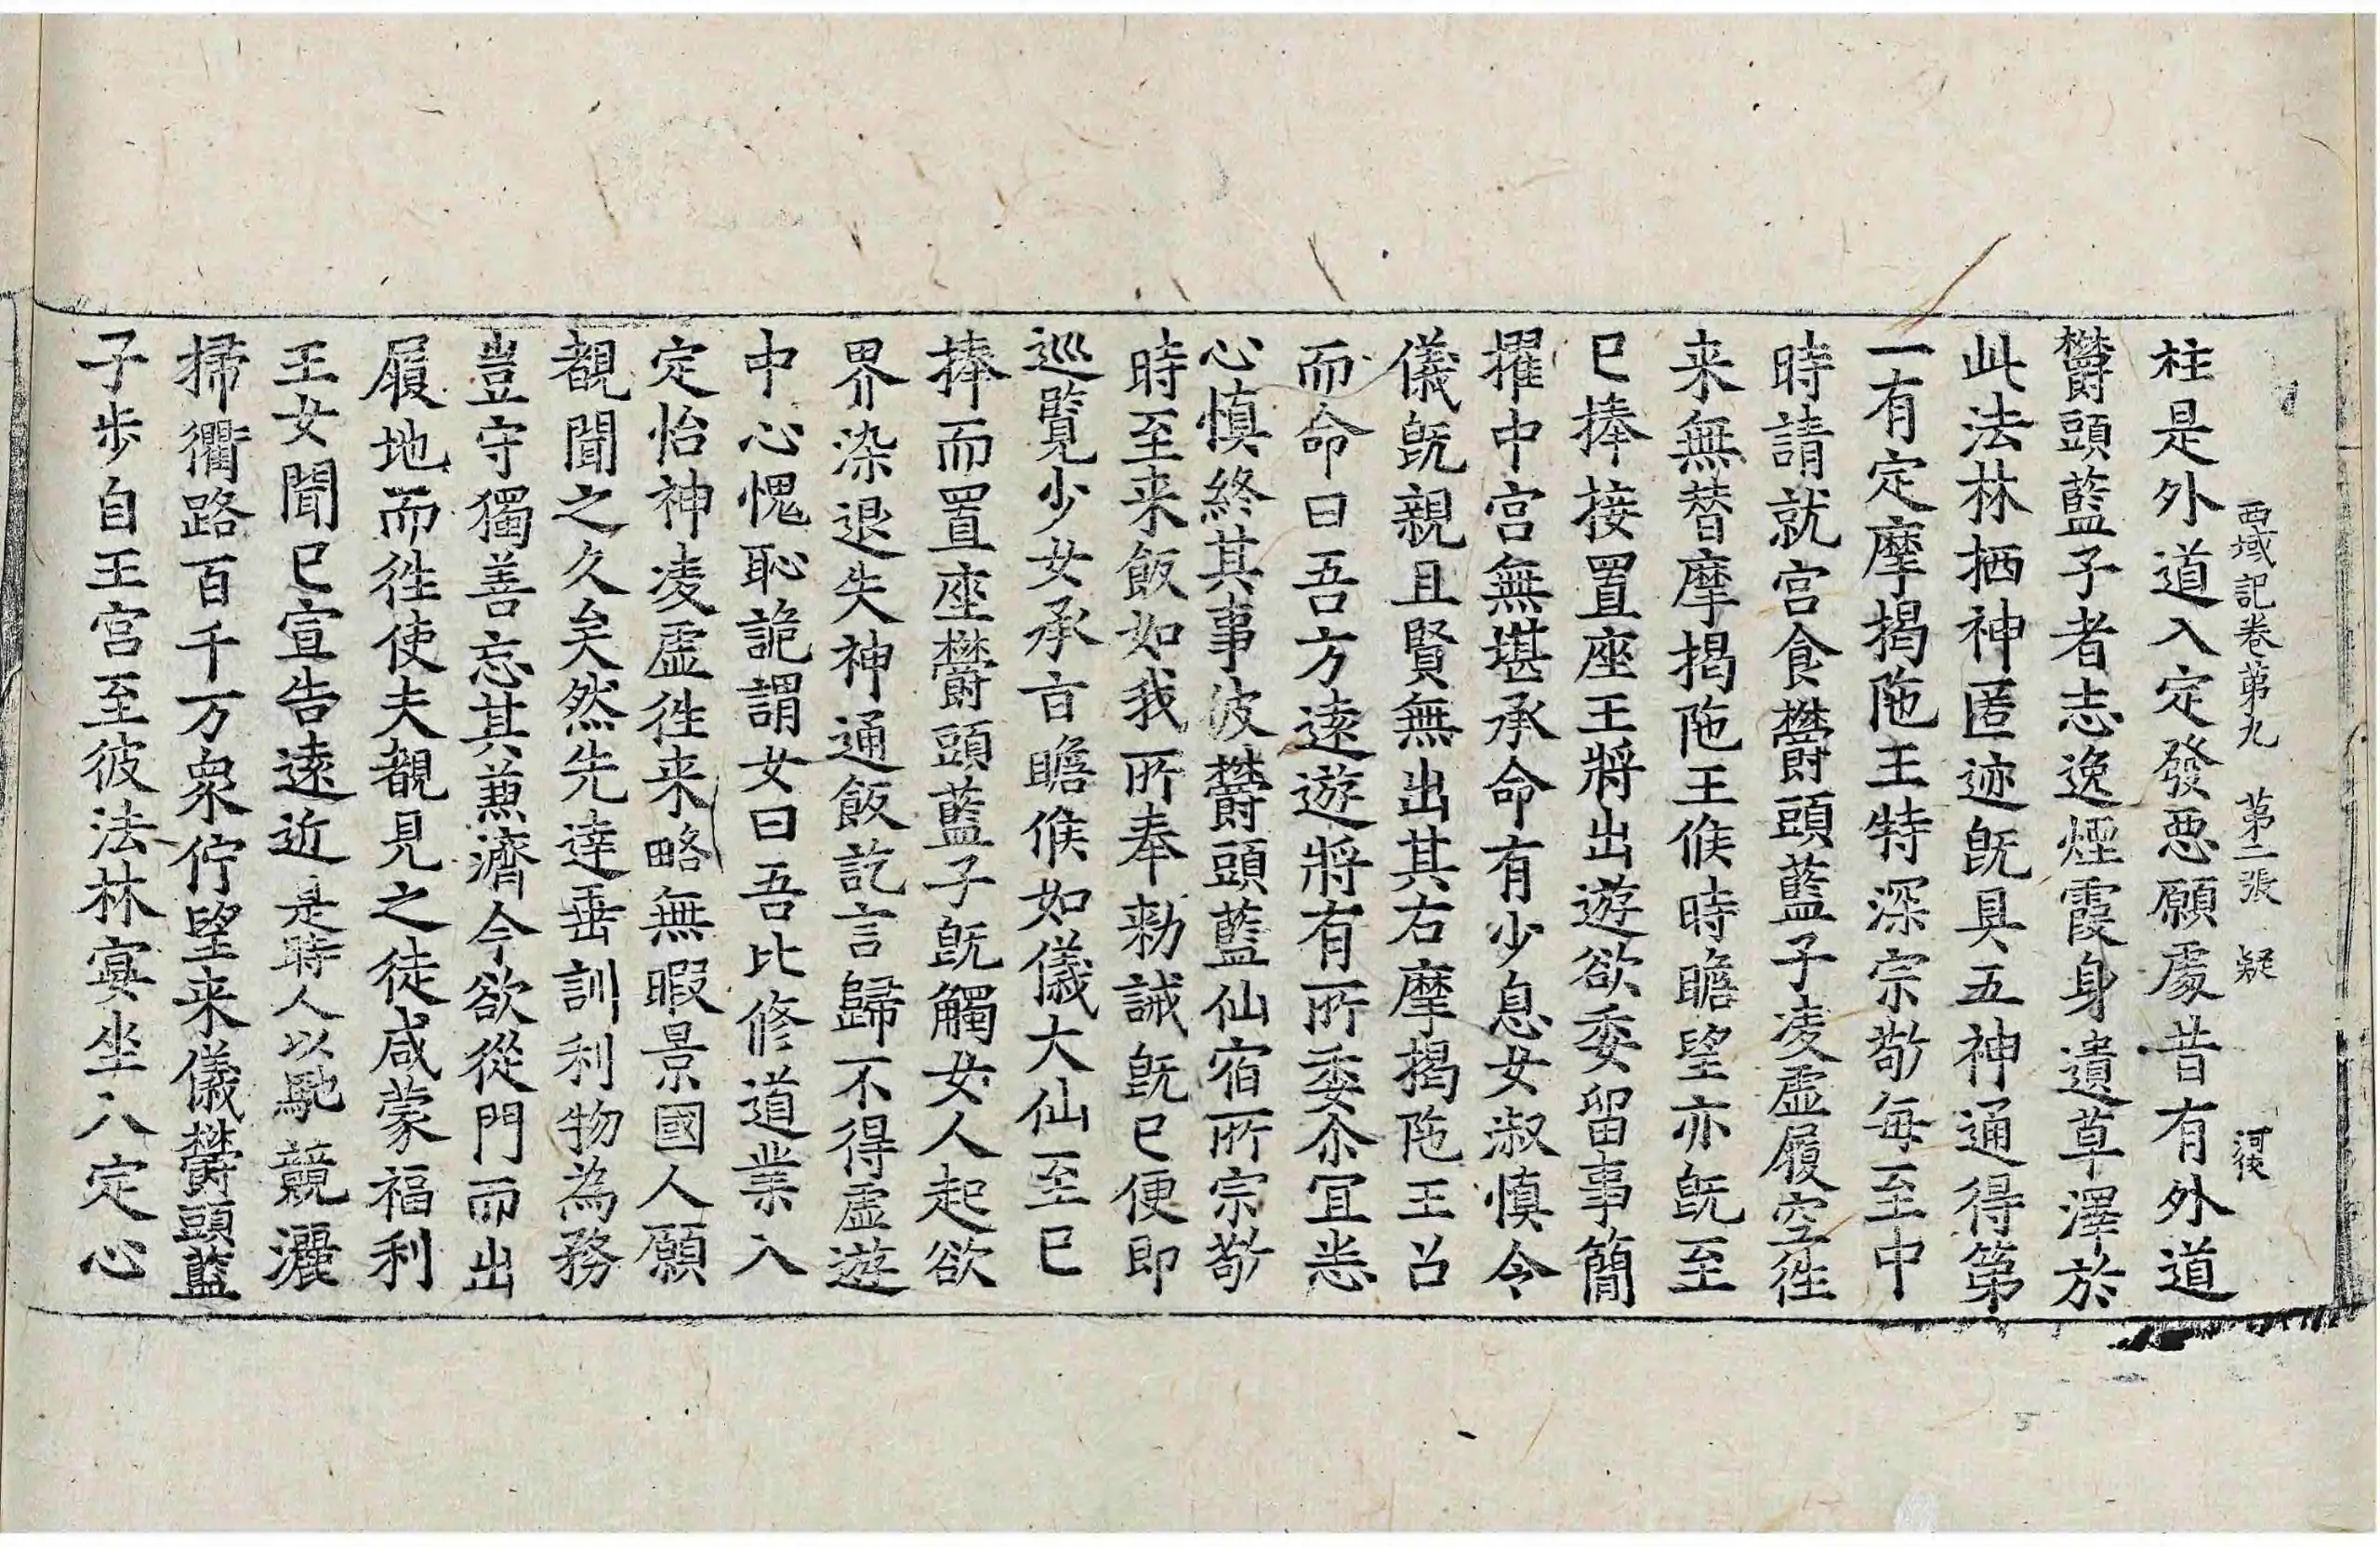 西域記卷第九 第二張 疑 河後
柱是外道入定發惡願處昔有外道
欝頭藍子者志逸煙霞身遺草澤於
此法林栖神匿迹旣具五神通得第
一有定摩揭陁王特深宗敬每至中
時請就宮食欝頭藍子凌虛履空徃
来無替摩揭陁王候時瞻望亦旣至
已捧接置座王將出遊欲委留事簡
擢中宮無堪承命有少息女淑慎令
儀旣親且賢無出其右摩揭陁王召
而命曰吾方遠遊將有所委尒冝悉
心慎終其事彼欝頭藍仙宿所宗敬
時至来飯如我所奉勑誡旣已便即
巡覧少女承旨瞻候如儀大仙至已
捧而置座欝頭藍子旣觸女人起欲
界染退失神通飯訖言歸不得虛遊
中心愧恥詭謂女曰吾比修道業入
定怡神凌虛徃来略無暇景國人願
覩聞之久矣然先達垂訓利物為務
豈守獨善忘其兼濟今欲從門而出
履地而徃使夫覩見之徒咸蒙福利
王女聞已宣告遠近是時人以馳競灑
掃衢路百千万衆佇望来儀欝頭藍
子步自王宮至彼法林宴坐入定心